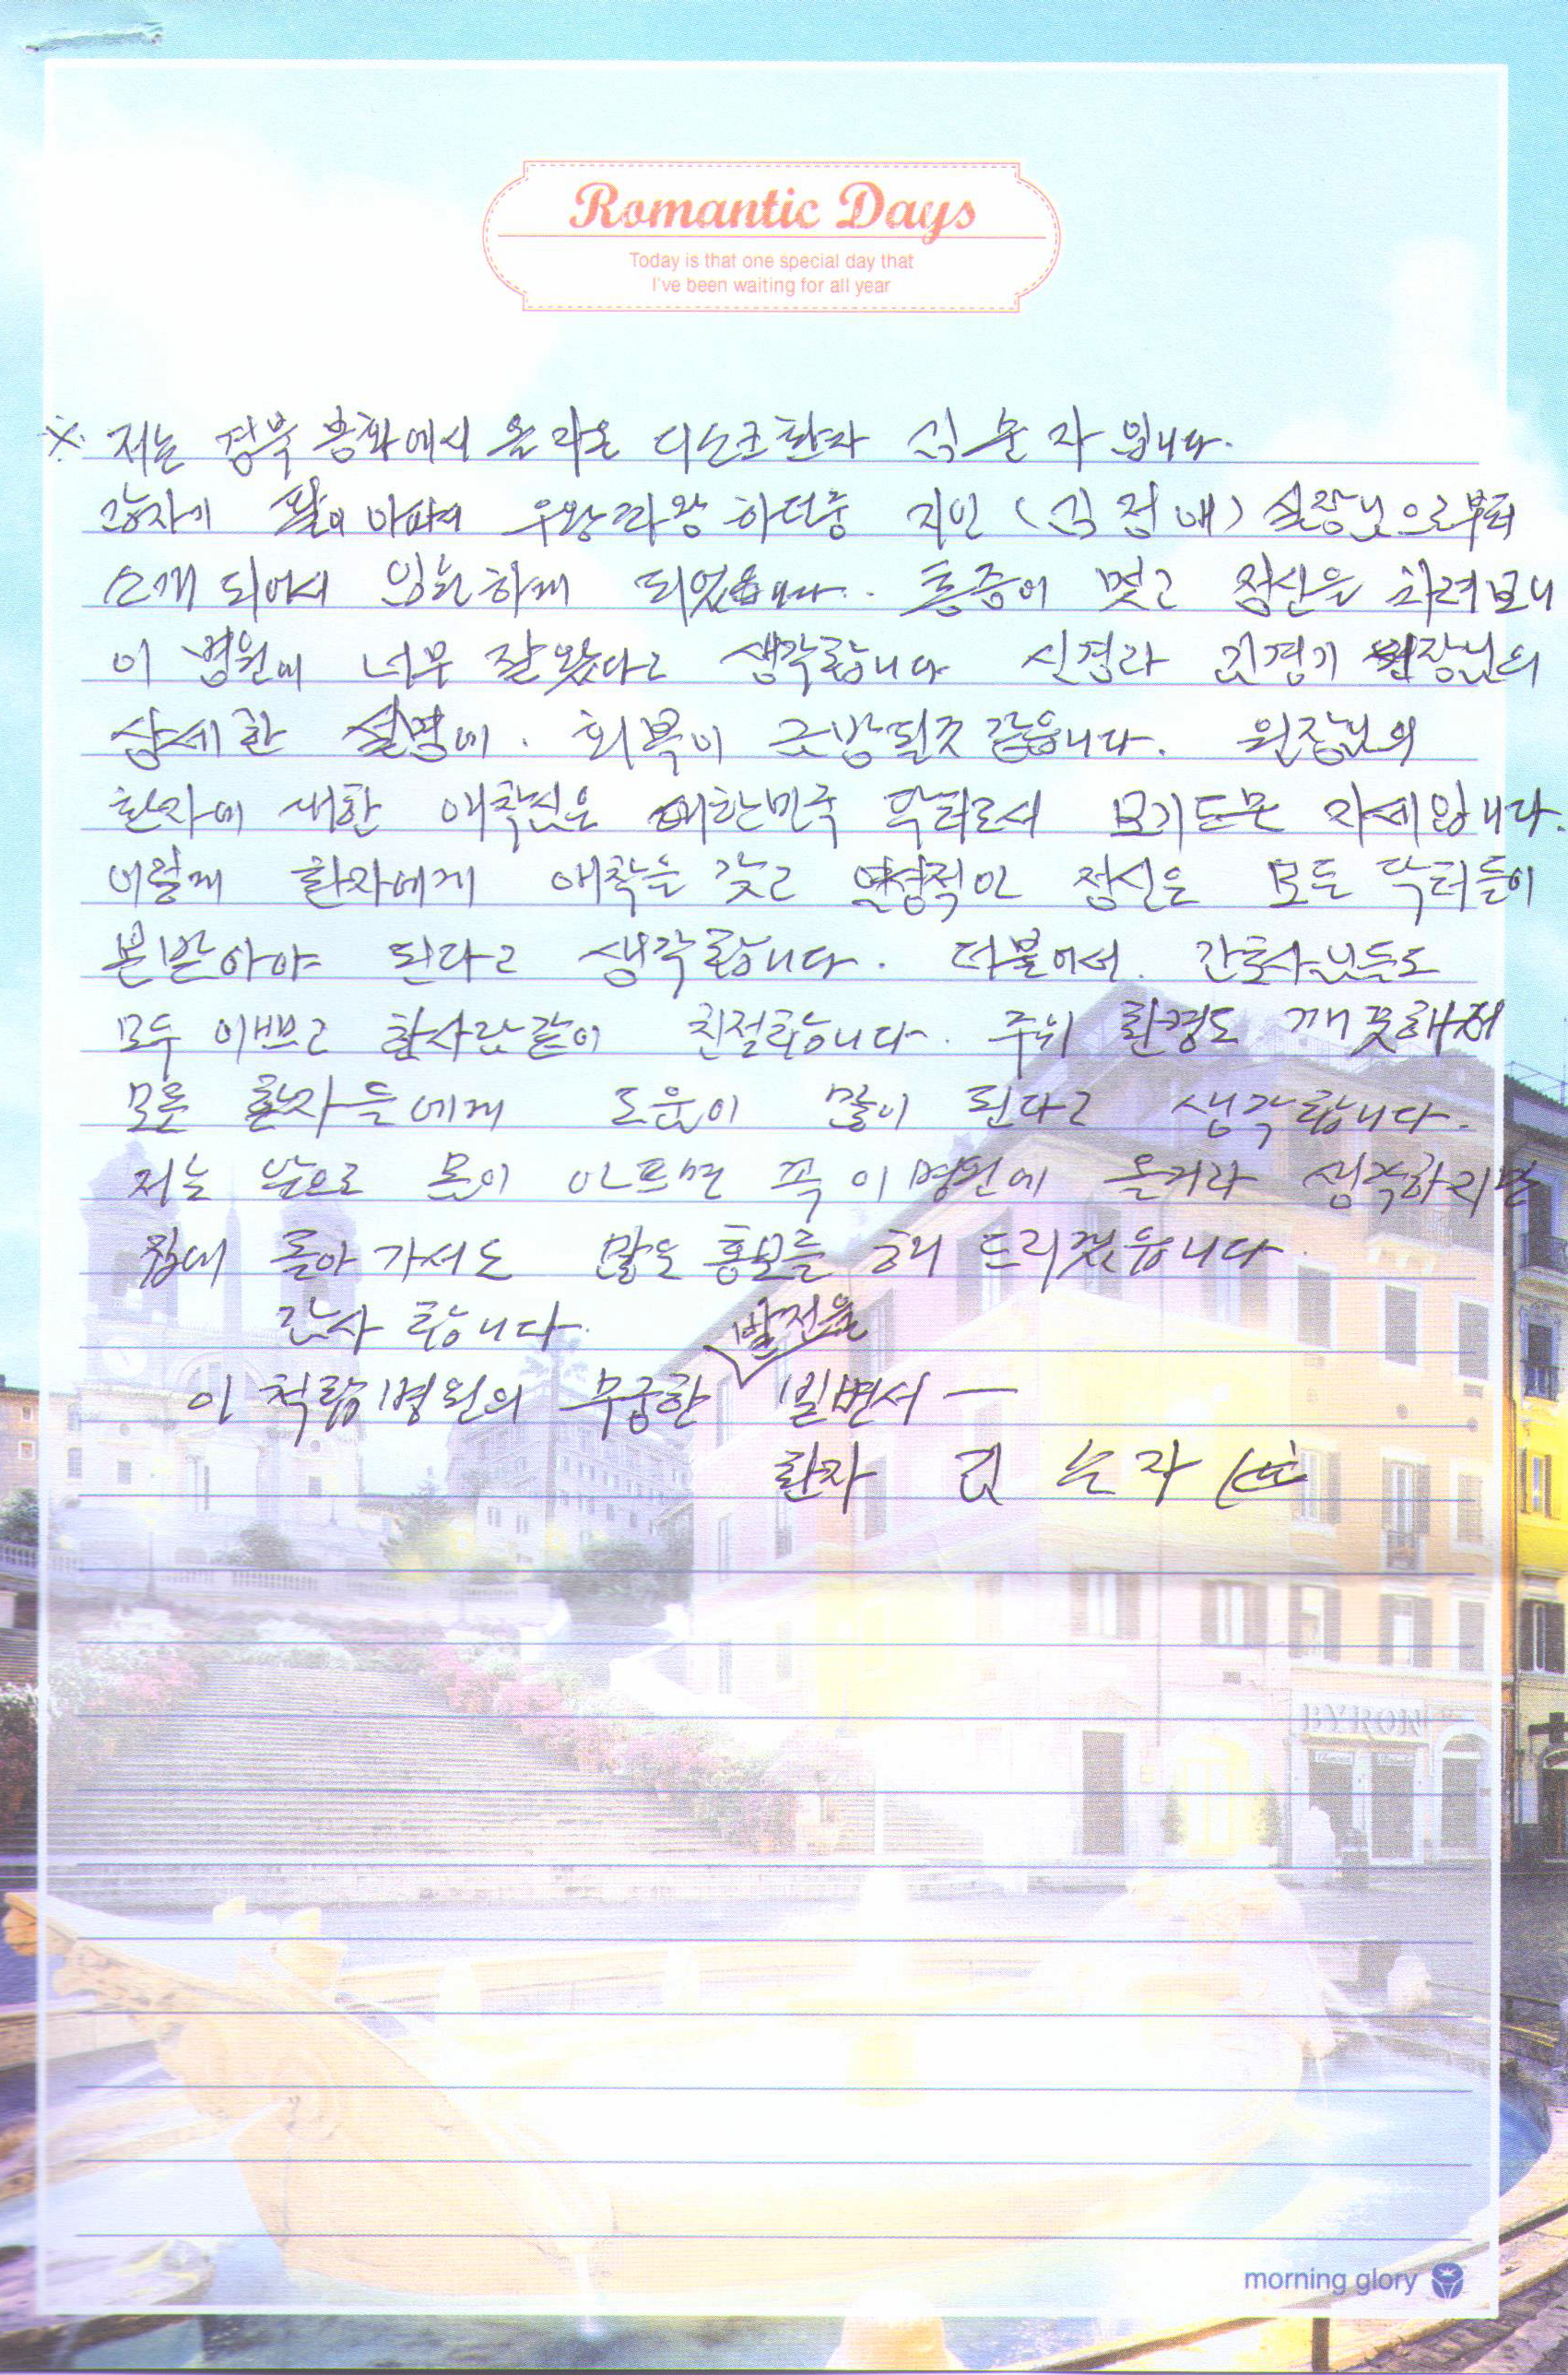 Romantic Days
Today is that one special day that
I've been waiting for all year
※ 저는 경북 봉화에서 올라온 디스크환자 김순자 입니다.
갑자기 팔이 아파서 우왕좌왕 하던중 지인 (김정애) 실장님으로부터
소개 되어서 입원하게 되었습니다. 통증이 멎고 정신을 차려보니
이 병원에 너무 잘왔다고 생각합니다 신경과 김경기 원장님의
상세한 설명에. 회복이 금방될것 같읍니다. 원장님의
환자에 대한 애착심은 대한민국 닥터로서 보기드문 자세입니다.
이렇게 환자에게 애착을 갖고 열성적인 정신은 모든 닥터들이
본받아야 된다고 생각합니다. 더불어서 간호사님들도
모두 이쁘고 한사람같이 친절합니다. 주위 환경도 깨끗해서
모든 환자들에게 도움이 많이 된다고 생각합니다.
저는 앞으로 몸이 아프면 꼭 이 병원에 올거라 생각하며
집에 돌아 가서도 많은 홍보를 해 드리겠읍니다.
감사 합니다.
이 척병원의 무궁한 발전을 빌면서 —
환자 김순자
BYRON
morning glory